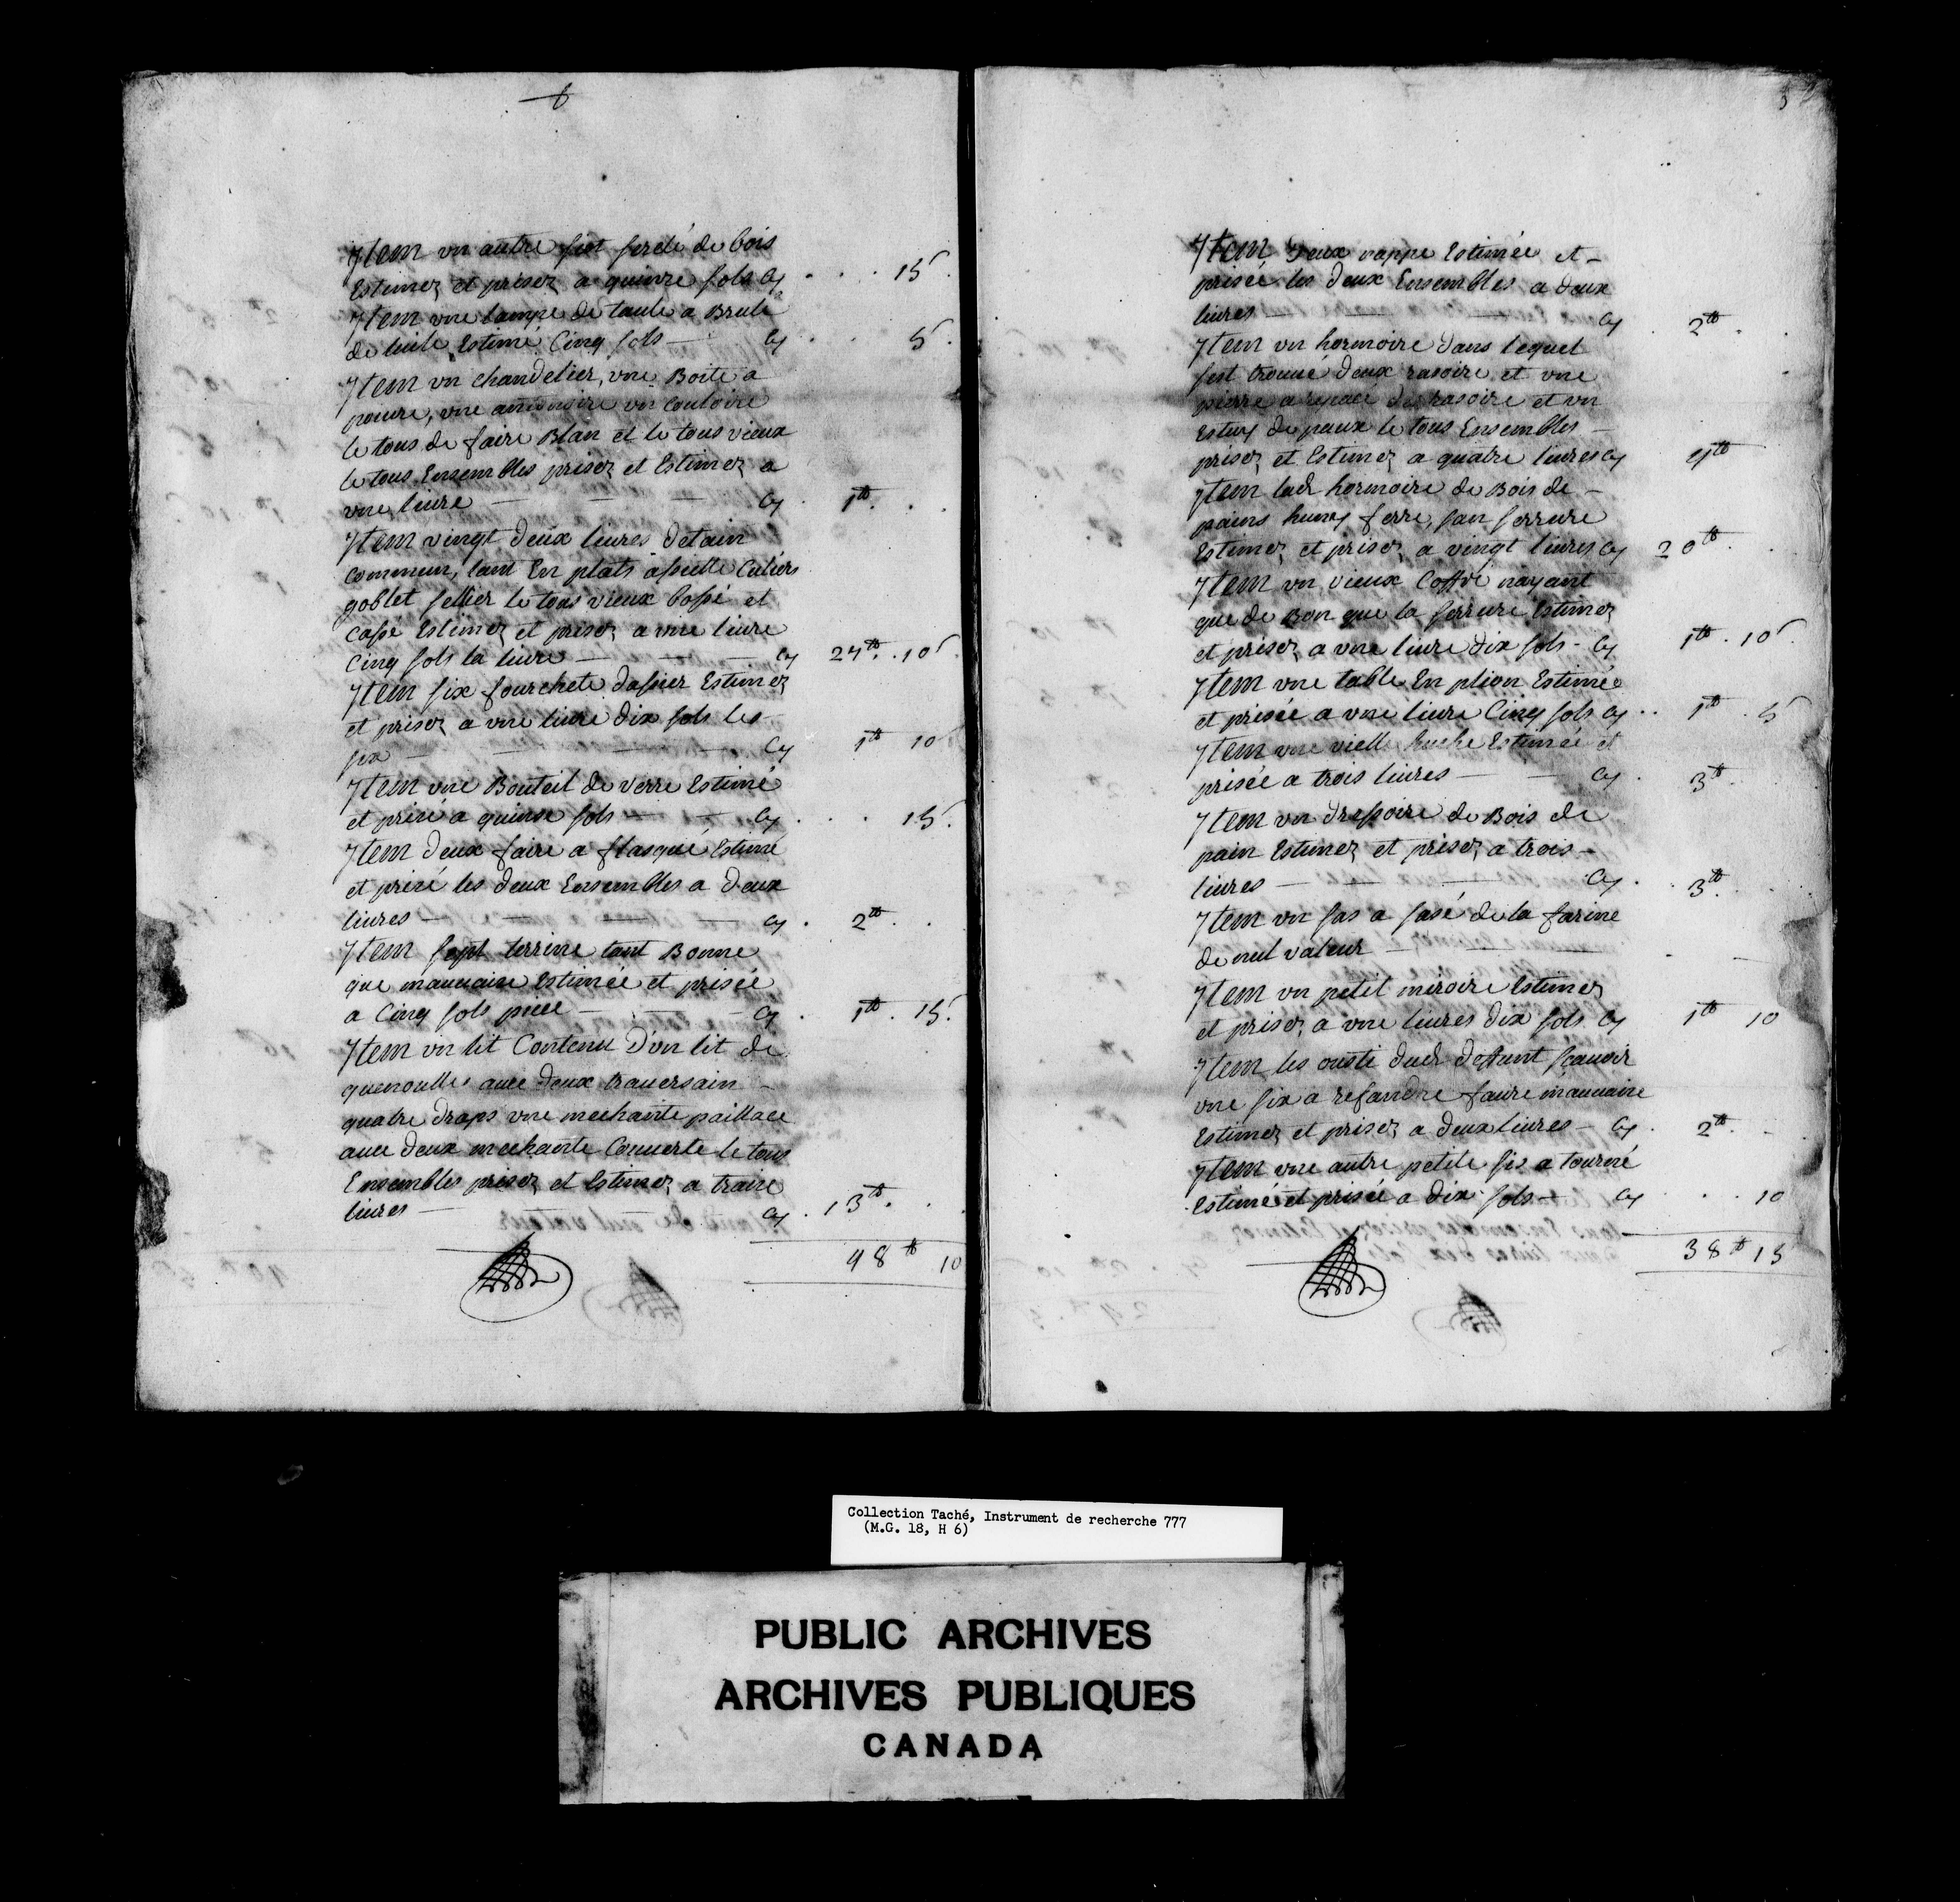 Jtem vn autre siot serclé de bois
Estimez et prisez a quinze sols Cy . . . 15s
Jtem vne lampe de taule a Brulé
de luile Estimé Cinq sols — Cy . . 5.
Jtem vn chandelier, vne Boite a
poiure, vne vn Couloire
le tous de faire Blan et le tous vieux
le tous Ensembles prisez et Estimez a
vne liure — — — Cy . 1tt . .
Jtem vingt deux liures detain
commun, tant En plats assiette Culiers
goblet sellier le tous vieux bossé et
cassé Estimez et prisez a vne liure
Cinq sols la liure — — Cy 27tt . 10s
Jtem six fourchete dassier Estimez
et prisez a vne liure dix sols les
six — — — Cy 1tt 10
Jtem vne Bouteil de verre Estimé
et prisé a quinse sols — Cy . . . 15.
Jtem deux faire a flasqué Estimé
et prisé les deux Ensembles a deux
liures — — — Cy . 2tt . .
Jtem sept terrine tant Bonne
que mauuaise Estimée et prisée
a Cinq sols piece — — Cy . 1tt . 15.
Jtem vn lit Contenu D'un lit de
quenoulles auec deux trauersain —
quatre draps vne mechante paillace
auec deux mechante Couuerte le tous
Ensembles prisez et Estimez a traise
liures — — Cy . 13tt . .
48tt 10
Jtem Deux nappe Estimée et —
prisée les deux Ensembles a deux
liures — — Cy . 2tt .
Jtem vn hormoire dans lequel
sest trouué deux rasoire et vne
pierre a repacé des rasoire et vn
Estuy de peaux le tous Ensembles —
prisez et Estimez a quatre liures Cy 4tt
Jtem lad hormoire de Bois de —
pains ferre, san serrure
Estimez et prisez a vingt liures Cy 20tt .
Jtem vn vieux Coffre nayant
que de Bon que la serrure Estimez
et prisez a vne liure dix sols - Cy 1tt . 10s
Jtem vne table En plion Estimée
et prisée a vne liure Cinq sols Cy . . 1tt . 5
Jtem vne vielle huche Estimée et
prisée a trois liures — — Cy . 3tt .
Jtem vn dressoire de Bois de
pain Estimez et prisez a trois —
liures — — Cy . . 3tt .
Jtem vn sas a sasé de la farine
de nul valeur — —
Jtem vn petit miroire Estimez
et prisez a vne liures dix sols Cy 1tt 10
Jtem les ousti dud deffunt sçauoir
vne six a refandre faure mauuaise
Estimez et prisez a deux liures — Cy . 2tt . —
Jtem vne autre petite sis a tourné
Estimée et prisée a dix sols — Cy . . . 10
38tt 15
Collection Taché, Instrument de recherche 777
(M.G. 18, H 6)
PUBLIC ARCHIVES
ARCHIVES PUBLIQUES
CANADA